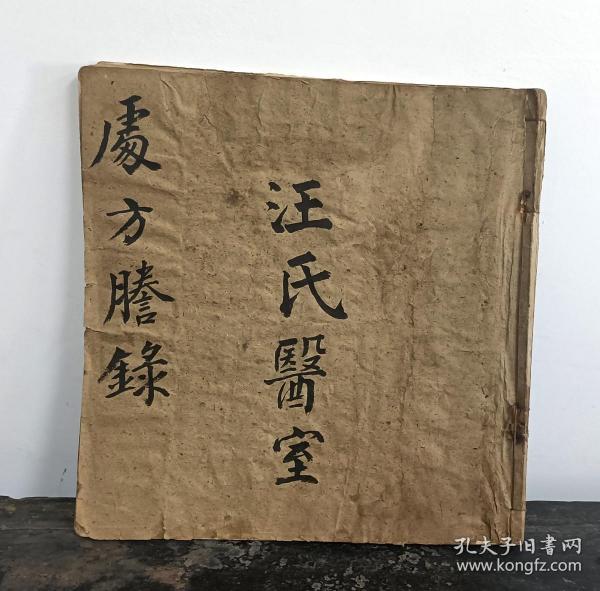 汪氏醫室
處方謄錄
孔夫子旧書网
www.kongfz.com